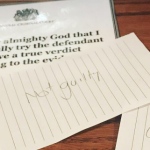 almighty God that I
ly try the defendant
a true verdict
g to the evi
Not guilty